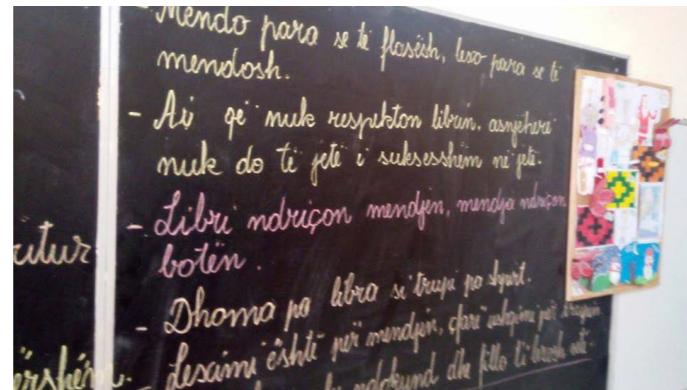 - Mendo para se të flasësh, lexo para se të
mendosh.
- Ai që nuk respekton librin, asnjëherë
nuk do të jetë i suksesshëm në jetë.
- Libri ndriçon mendjen, mendja ndriçon
botën.
- Dhoma pa libra si trupi pa shpirt.
- Leximi është për mendjen, çfarë ushqimi për trupin.
ndokund dhe fillo ta